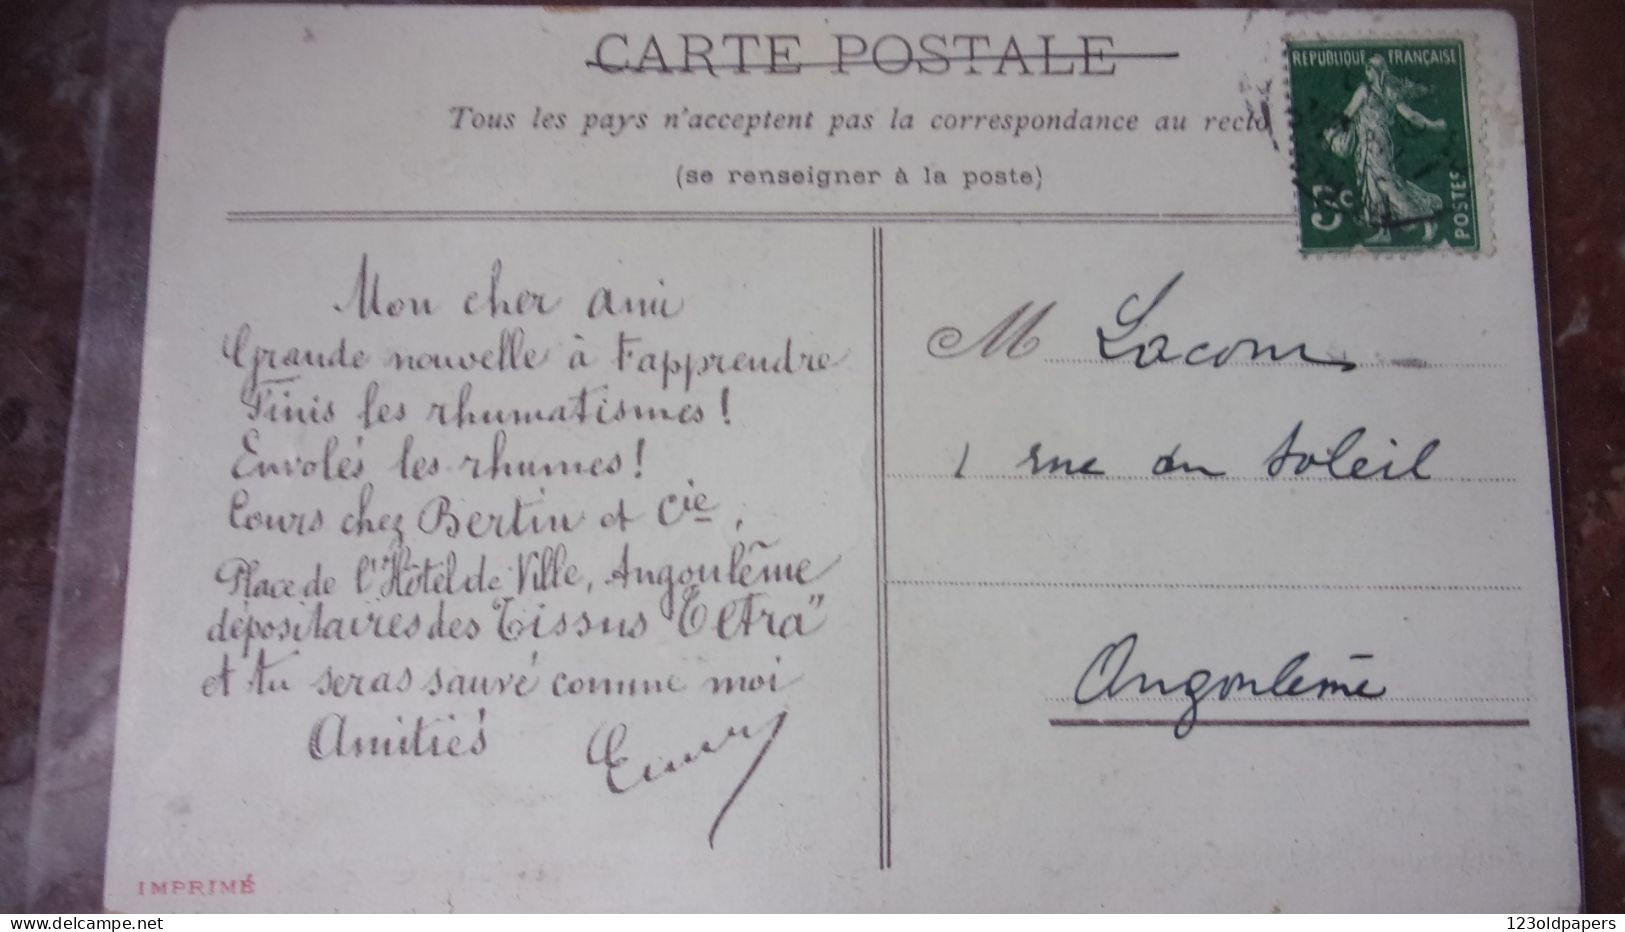 CARTE POSTALE
Tous les pays n'acceptent pas la correspondance au recto
(se renseigner à la poste)
REPUBLIQUE FRANÇAISE
5c
POSTES
Mon cher ami
Grande nouvelle à t'apprendre
Finis les rhumatismes!
Envolés les rhumes!
Cours chez Bertin et Cie,
Place de l'Hôtel de Ville, Angoulême
dépositaires des Tissus Tetra"
et tu seras sauvé comme moi
Amitiés
M Lacom
1 rue du Soleil
Angoulême
IMPRIMÉ
123oldpapers